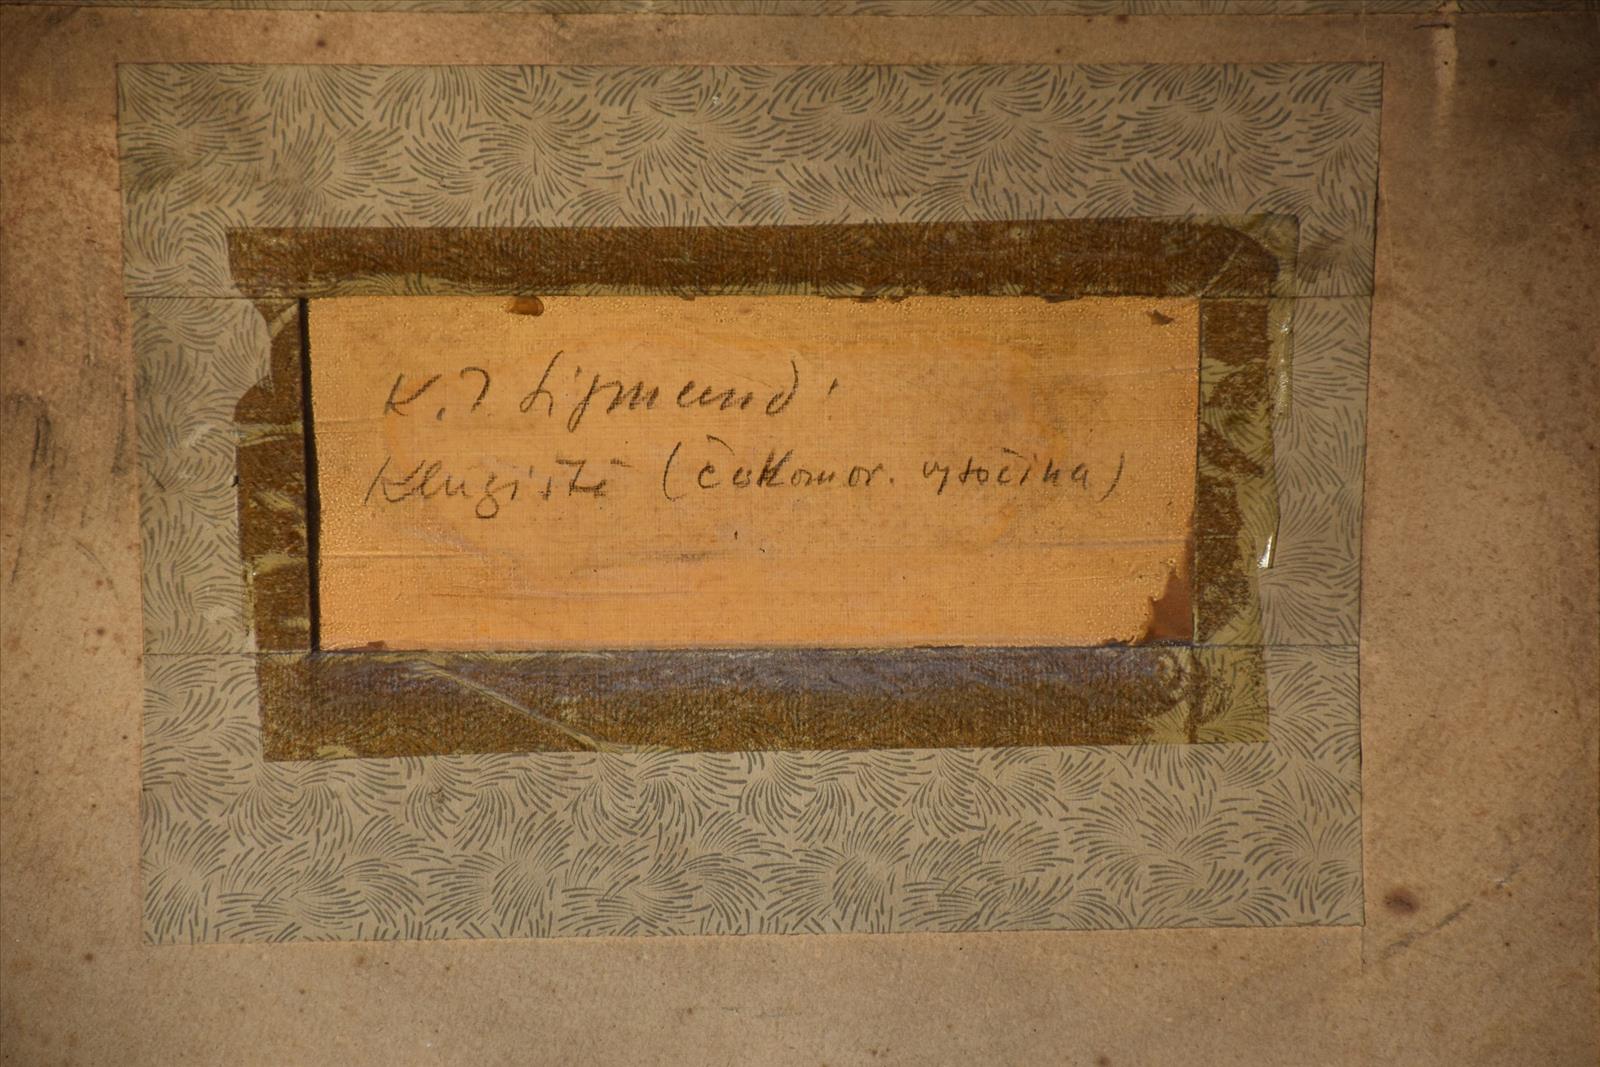 K. J Sigmund:
Kluziště (českomor. vysočina)